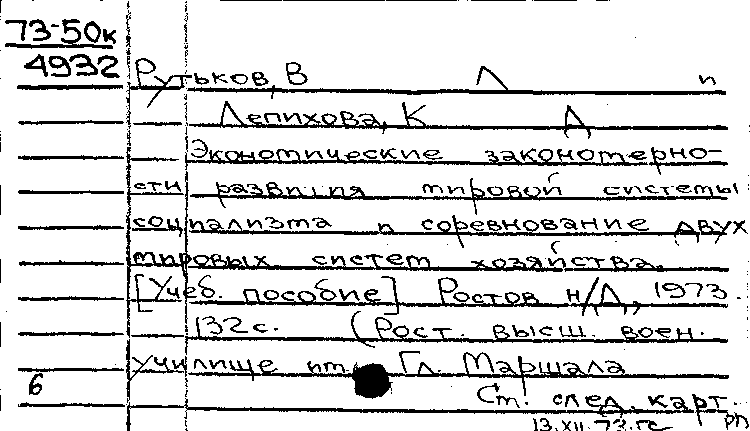 73-50к
4932
Рутьков, В Л и
Лепихова, К Д
Экономические закономерно-
сти развития мировой системы
социализма и соревнование двух
мировых систем хозяйства.
[Учеб. пособие] Ростов н/Д, 1973.
132 с. (Рост. высш. воен.
училище им. Гл. Маршала
6 Ст. след. карт.
13.XII.73.гс РП